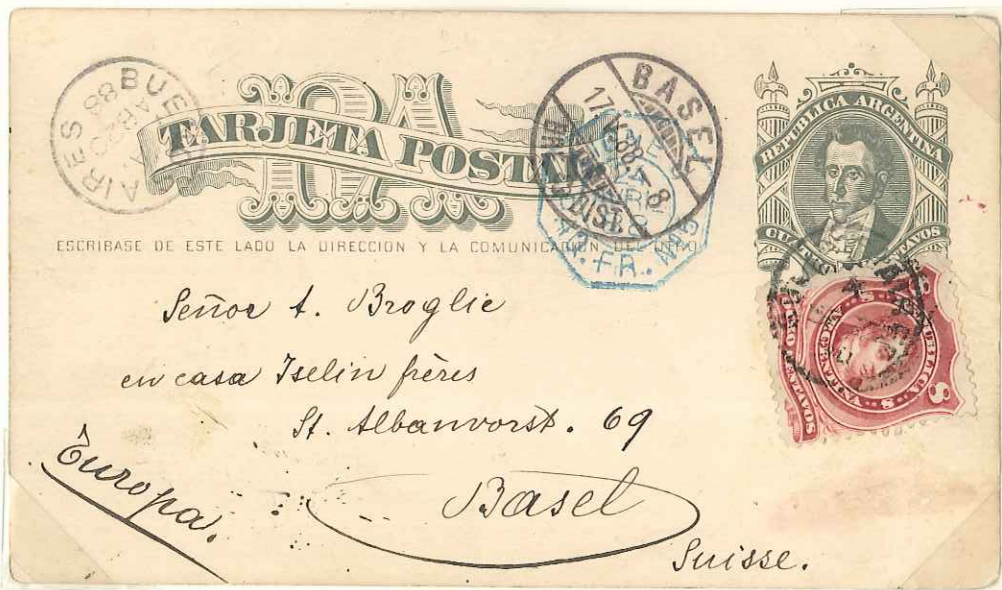 BUENOS AIRES
AB20
88
RA
TARJETA POSTAL
BASEL
17. V. 88. - 8
BRF. DIST.
LIGNE
PAQ. FR. Nº5
REPUBLICA ARGENTINA
CUATRO CENTAVOS
ESCRIBASE DE ESTE LADO LA DIRECCION Y LA COMUNICACION DEL OTRO
8
CENTAVOS
Señor A. Broglie
en casa Iselin frères
St. Albanvorst. 69
Europa.
Basel
Suisse.